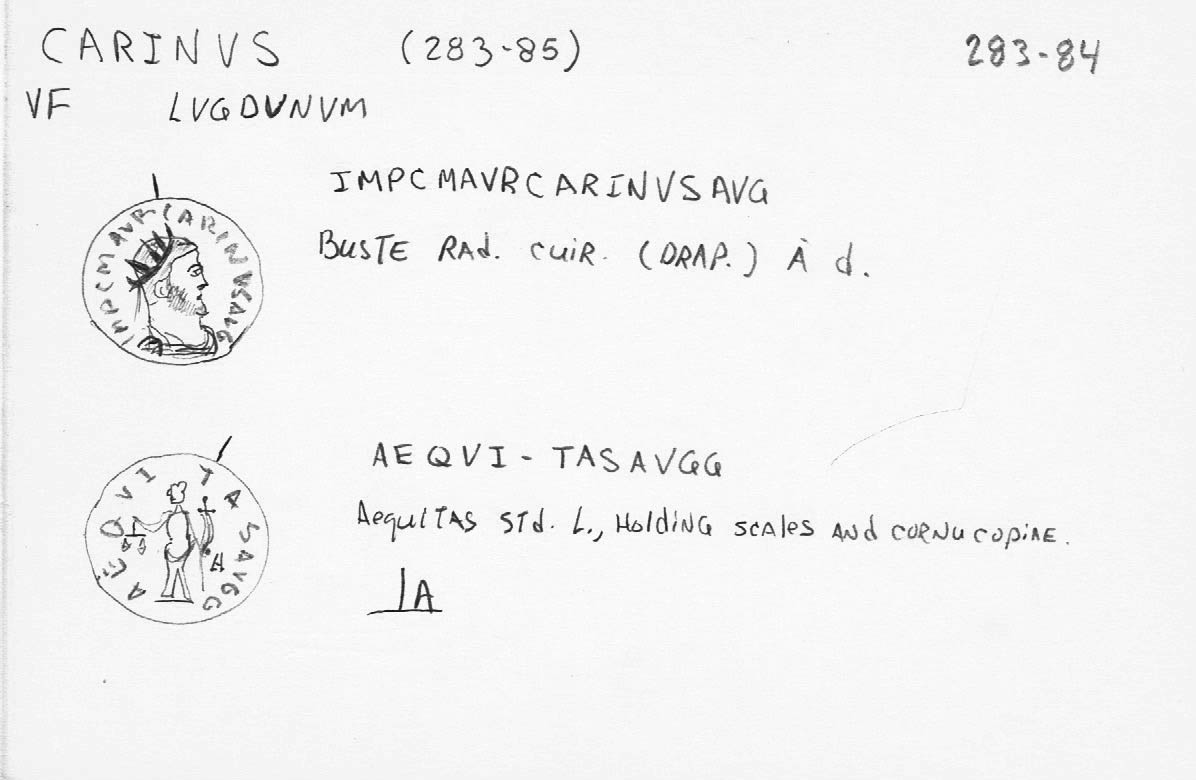 CARINVS (283-85) 283-84
VF LVGDVNVM
IMPCMAVRCARINVSAVG
IMPCMAVRCARINVSAVG
BUSTE RAd. CUIR. (DRAP.) À d.
AEQVI - TASAVGG
AEQVI TASAVGG
A
AequiTAS STd. L., HoldiNG SCAles ANd CORNUCOpiAE.
A